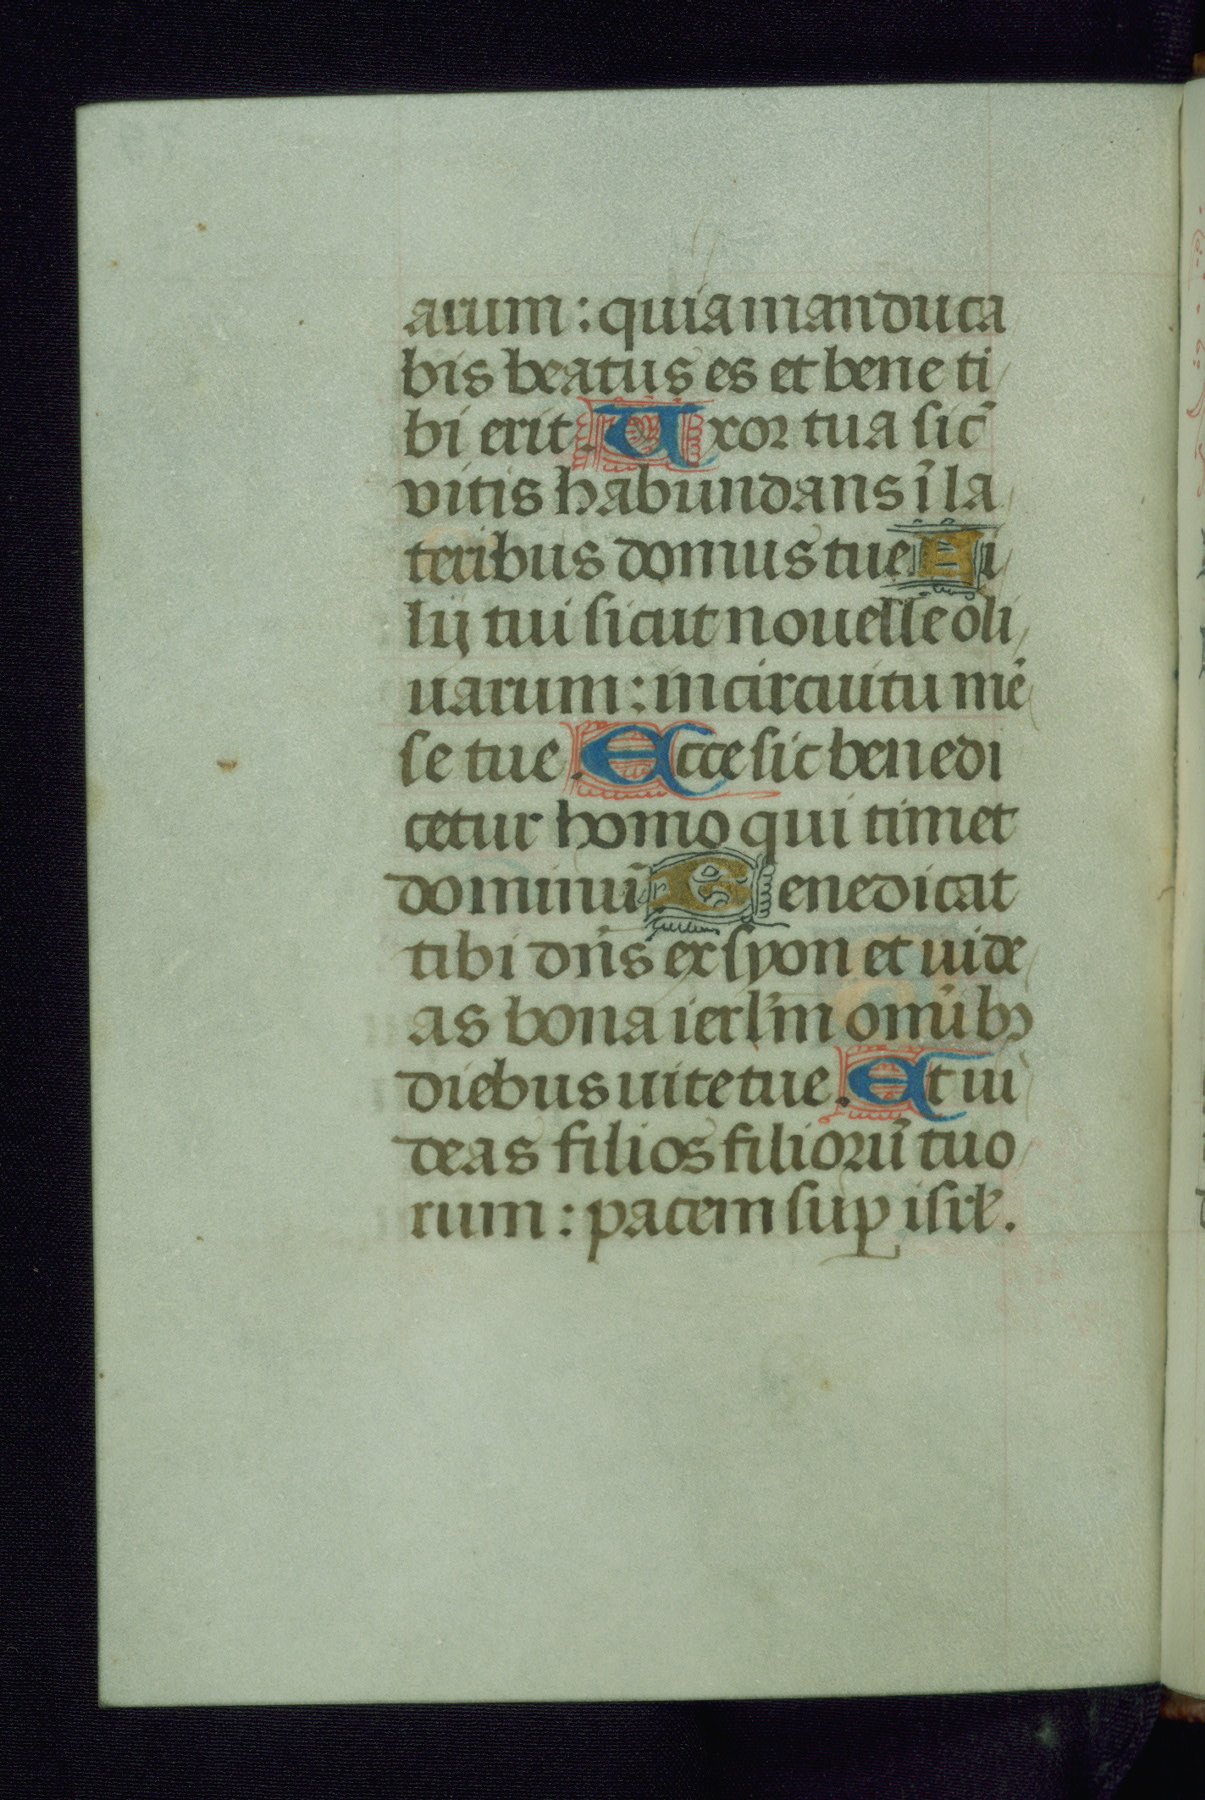 arum : quia manduca
bis beatus es et bene ti
bi erit. Uxor tua sic̄
vitis habundans ī la
teribus domus tue Fi
lij tui sicut nouelle oli
uarum : in circuitu mē
se tue. Ecce sic benedi
cetur homo qui timet
dominū Benedicat
tibi dn̄s ex syon et uide
as bona ierl̄m omībꝫ
diebus uite tue. Et ui
deas filios filiorū tuo
rum : pacem suꝑ isrl̄.